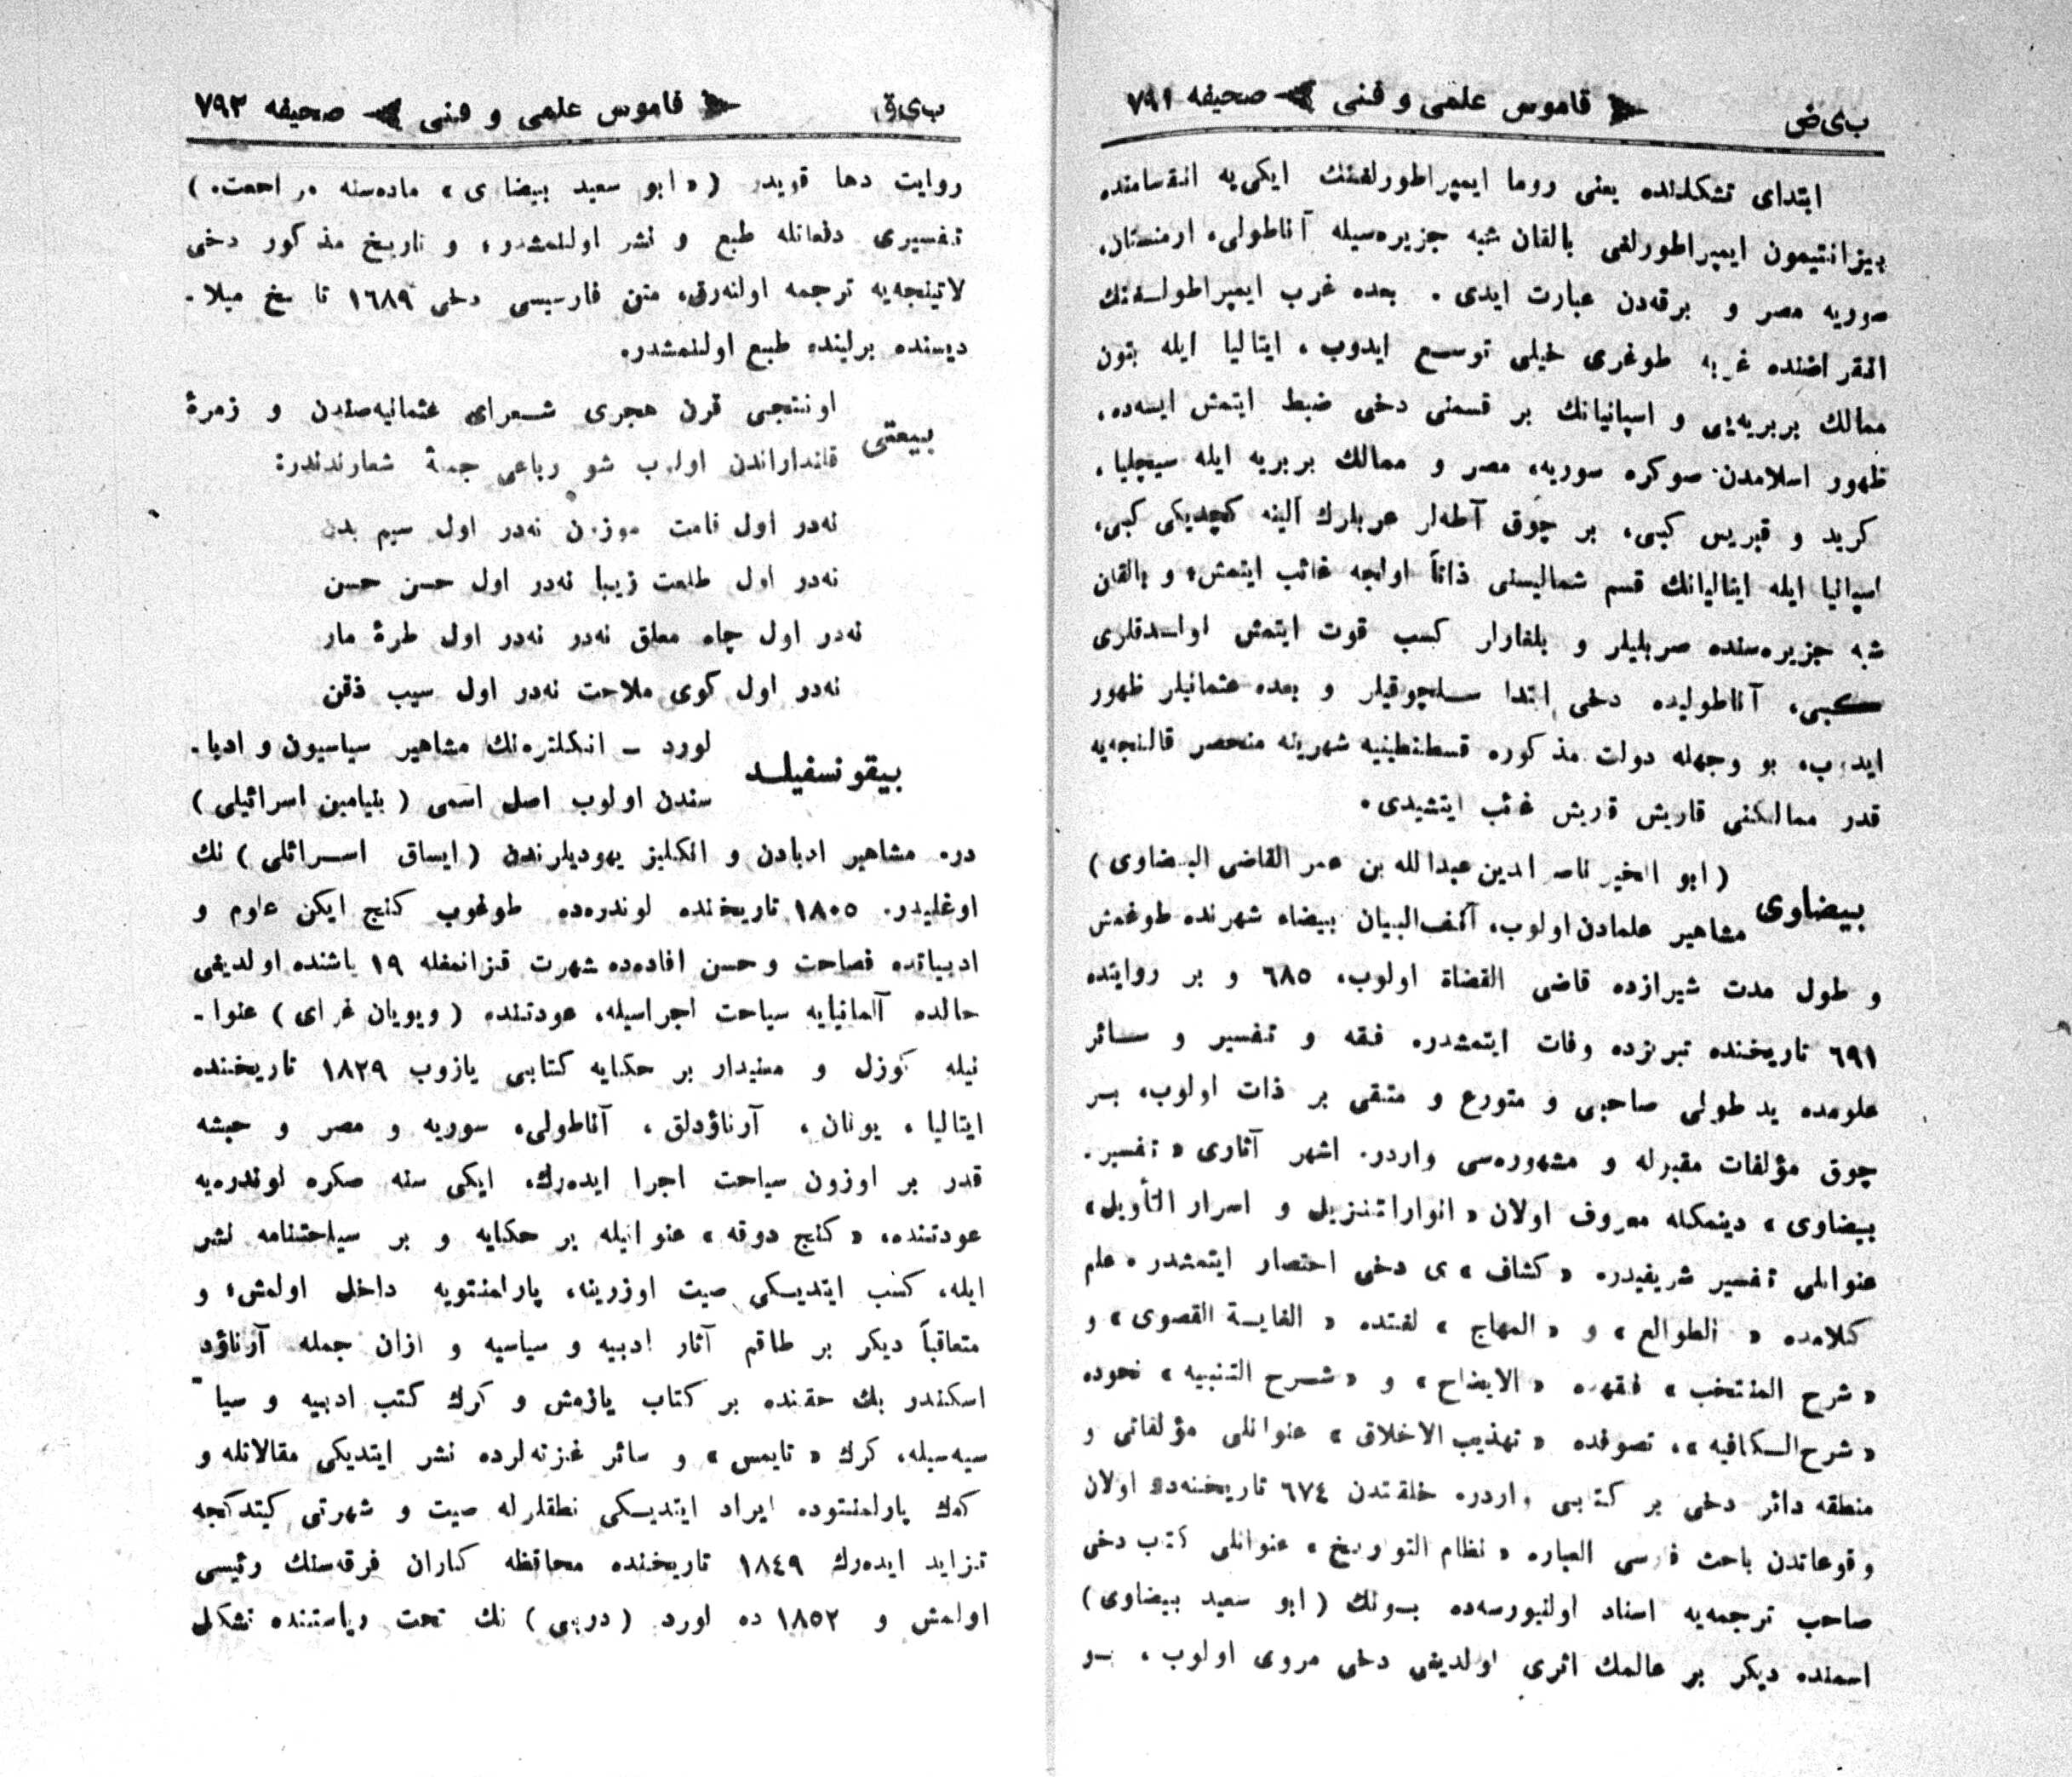 ب‌ى‌ض قاموس علمى و فنى صحيفه ٧٩١
ابتداى تشكلنده يعنى روما ايمپراطورلغنك ايكى‌يه انقسامنده
بيزانتيمون ايمپراطورلغى بالقان شبه جزيره‌سيله آناطولى، ارمنستان،
سوريه مصر و برقه‌دن عبارت ايدى . بعده غرب ايمپراطولـغنك
انقراضنده غربه طوغرى خيلى توسـع ايدوب ، ايتاليا ايله بتون
ممالك بربريه‌يى و اسپانيانك بر قسمنى دخى ضبط ايتمش ايسه‌ده،
ظهور اسلامدن صوكره سوريه، مصر و ممالك بربريه ايله سيچليا ،
كريد و قبريس كبى، بر چوق آطه‌لر عربلرك الينه كچديكى كبى،
اسپانيا ايله ايتاليانك قسم شماليسنى ذاتاً اولجه غائب ايتمش؛ و بالقان
شبه جزيره‌سنده صربليلر و بلغارلر كسب قوت ايتمش اولـدقلرى
كـبى، آناطوليده دخى ابتدا سـلچوقيلر و بعده عثمانيلر ظهور
ايدوب، بو وجهله دولت مذكوره قسطنطينيه شهرينه منحصر قالنجه‌يه
قدر ممالكنى قاريش قاريش غائب ايتشيدى.
بيضاوى (ابو الخير ناصر الدين عبدالله بن عمر القاضى البيضاوى)
مشاهير علمادن اولوب، آنف‌البيان بيضاء شهرنده طوغمش
و طول مدت شيرازده قاضى القضاة اولوب، ٦٨٥ و بر روايتده
٦٩١ تاريخنده تبريزده وفات ايتمشدر. فقه و تفسير و سـائر
علومده يد طولى صاحبى و متورع و متقى بر ذات اولوب، بـر
چوق مؤلفات مقبوله و مشهوره‌سى واردر. اشهر آثارى «تفسير.
بيضاوى» دينمكله معروف اولان «انوارالتنزيل و اسرار التأويل»
عنوانلى تفسير شريفيدر. «كشاف»ى دخى اختصار ايتمشدر. علم
كلامده «الطوالع» و «المهاج» لغتده «الغايـة القصوى» و
«شرح المنتخب» فقهده «الايضاح» و «شـرح التنبيه» نحوده
«شرح‌الـكافيه»، تصوفده «تهذيب الاخلاق» عنوانلى مؤلفاتى و
منطقه دائر دخى بر كتابى واردر. خلقتدن ٦٧٤ تاريخنه‌دك اولان
وقوعاتدن باحث فارسى العباره «نظام التواريخ» عنوانلى كتاب دخى
صاحب ترجمه‌يه اسناد اولنيورسه‌ده بـونك (ابو سعيد بيضاوى)
اسمنده ديكر بر عالمك اثرى اولديغى دخى مروى اولوب ، بـو
ب‌ى‌ق قاموس علمى و فنى صحيفه ٧٩٢
روايت دها قويدر («ابو سعيد بيضاوى» ماده‌سنه مراجعت.)
تفسيرى دفعاتله طبع و نشر اولنمشدر؛ و تاريخ مذكور دخى
لاتينجه‌يه ترجمه اولنه‌رق، متن فارسيسى دخى ١٦٨٩ تاريخ ميلا-
ديسنده برلينده طبع اولنمشدر.
بيعتى اوننجى قرن هجرى شـعراى عثمانيه‌سندن و زمرۀ
قلندراندن اولوب شو رباعى جملۀ شعارندندر:
نه‌در اول قامت موزون نه‌در اول سيم بدن
نه‌در اول طلعت زيبا نه‌در اول حسن حسن
نه‌در اول چاه معلق نه‌در نه‌در اول طرۀ مار
نه‌در اول كوى ملاحت نه‌در اول سيب ذقن
بيقونسفيلـد لورد ـ انكلتره‌نك مشاهير سياسيون و ادبا-
سندن اولوب اصل اسمى (بنيامين اسرائيلى)
در. مشاهير ادبادن و انكليز يهوديلرندن (ايساق اسـرائلى) نك
اوغليدر. ١٨٠٥ تاريخنده لوندره‌ده طوغوب كنج ايكن علوم و
ادبياتده فصاحت و حسن افاده‌ده شهرت قزانمغله ١٩ ياشنده اولديغى
حالده آلمانيايه سياحت اجراسيله، عودتنده (ويويان غراى) عنوا-
نيله كوزل و معنيدار بر حكايه كتابى يازوب ١٨٢٩ تاريخنده
ايتاليا ، يونان ، آرناؤدلق ، آناطولى، سوريه و مصر و حبشه
قدر بر اوزون سياحت اجرا ايده‌رك، ايكى سنه صكره لوندره‌يه
عودتنده، «كنج دوقه» عنوانيله بر حكايه و بر سياحتنامه نشر
ايله، كسب ايتديـكى صيت اوزرينه، پارلمنتويه داخل اولمش؛ و
متعاقباً ديكر بر طاقم آثار ادبيه و سياسيه و ازان جمله آرناؤد
اسكندر بك حقنده بر كتاب يازمش و كرك كتب ادبيه و سيا-
سيه‌سيله، كرك «تايمس» و سائر غزته‌لرده نشر ايتديكى مقالاتله و
كرك پارلمنتوده ايراد ايتديـكى نطقلرله صيت و شهرتى كيتدكجه
تزايد ايده‌رك ١٨٤٩ تاريخنده محافظه كاران فرقه‌سنك رئيسى
اولمش و ١٨٥٢ ده لورد (دربى) نك تحت رياستنده تشكل